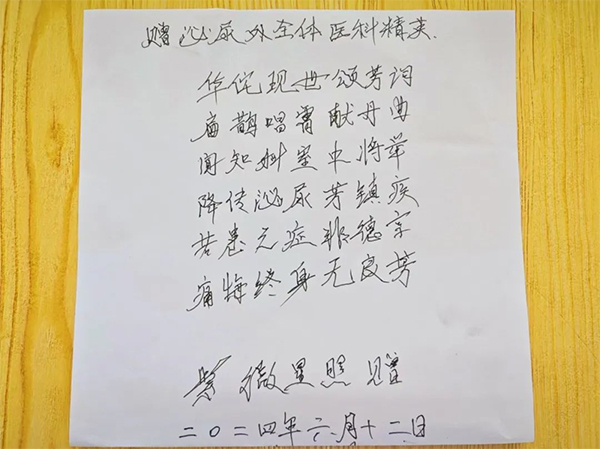 赠泌尿外全体医科精英.
华佗现世颂芳词
扁鹊唱霄献丹曲
闻知科室中将举
降传泌尿芳镇疾
若患元症非德字
痛悔终身无良芳
紫薇星照赠
二〇二四年六月十二日